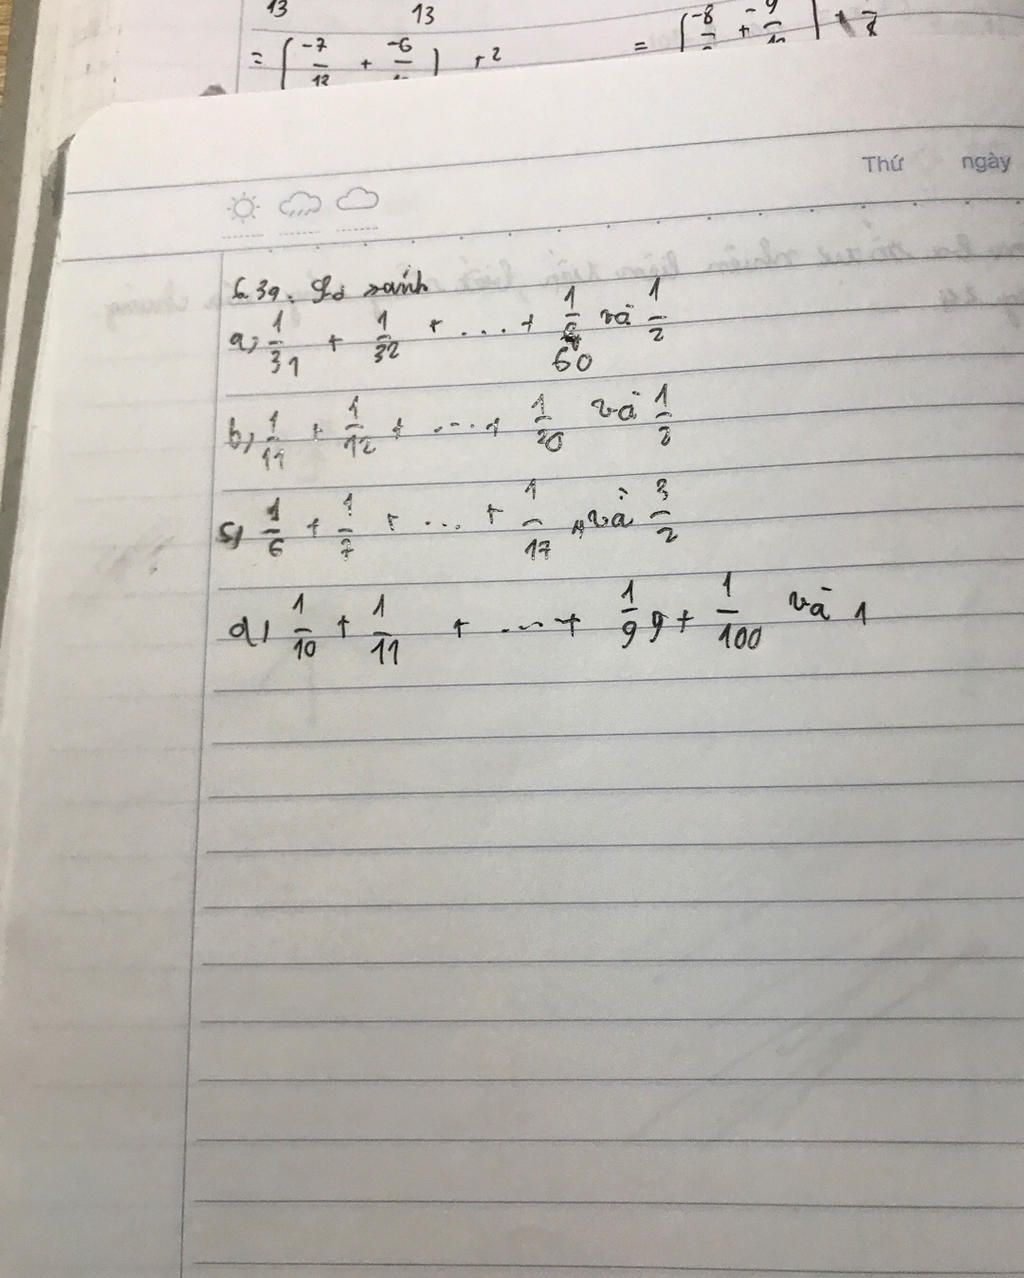 13 13
= ( -7/12 + -6/ ) + 2 = ( -8/ + -9/ ) +
Thứ ngày
6.39. So sánh
a, 1/31 + 1/32 + .... + 1/60 và 1/2
b, 1/11 + 1/12 + ....+ 1/20 và 1/2
c, 1/6 + 1/7 + ... + 1/17 và 3/2
d, 1/10 + 1/11 + ....+ 1/99 + 1/100 và 1